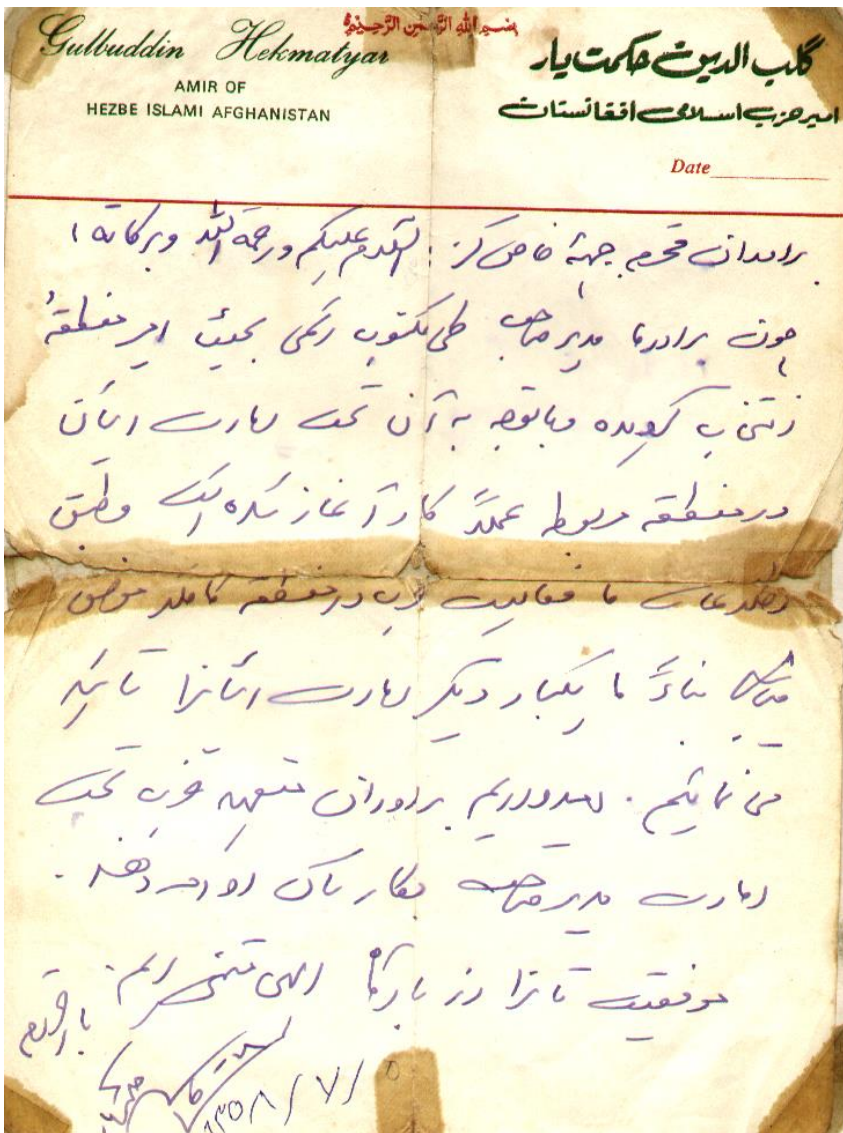 بسم الله الرحمن الرحیم
Gulbuddin Hekmatyar
AMIR OF
HEZBE ISLAMI AFGHANISTAN
گلب الدین حکمت یار
امیر حزب اسلامی افغانستان
Date
برادران محترم جبهۀ خاص کنر: السلام علیکم ورحمة الله وبرکاته!
چون برادر ما مدیر صاحب طی مکتوب رسمی بحیث امیر منطقهٔ
انتخاب گردیده و با توجه به آن تحت امارت ایشان
در منطقه مربوط عملاً کار آغاز شده است و طبق
اطلاعات ما فعالیت حزب در منطقه کاملا
میباشد بناءً ما یکبار دیگر امارت ایشانرا تائید
می نمائیم. امیدواریم برادران متعهد حزب تحت
امارت مدیر صاحب بکار شان ادامه دهند.
موفقیت تانرا از بارگاه الهی متمنی ایم.
با احترام
۱۳۵۸/۷/۵